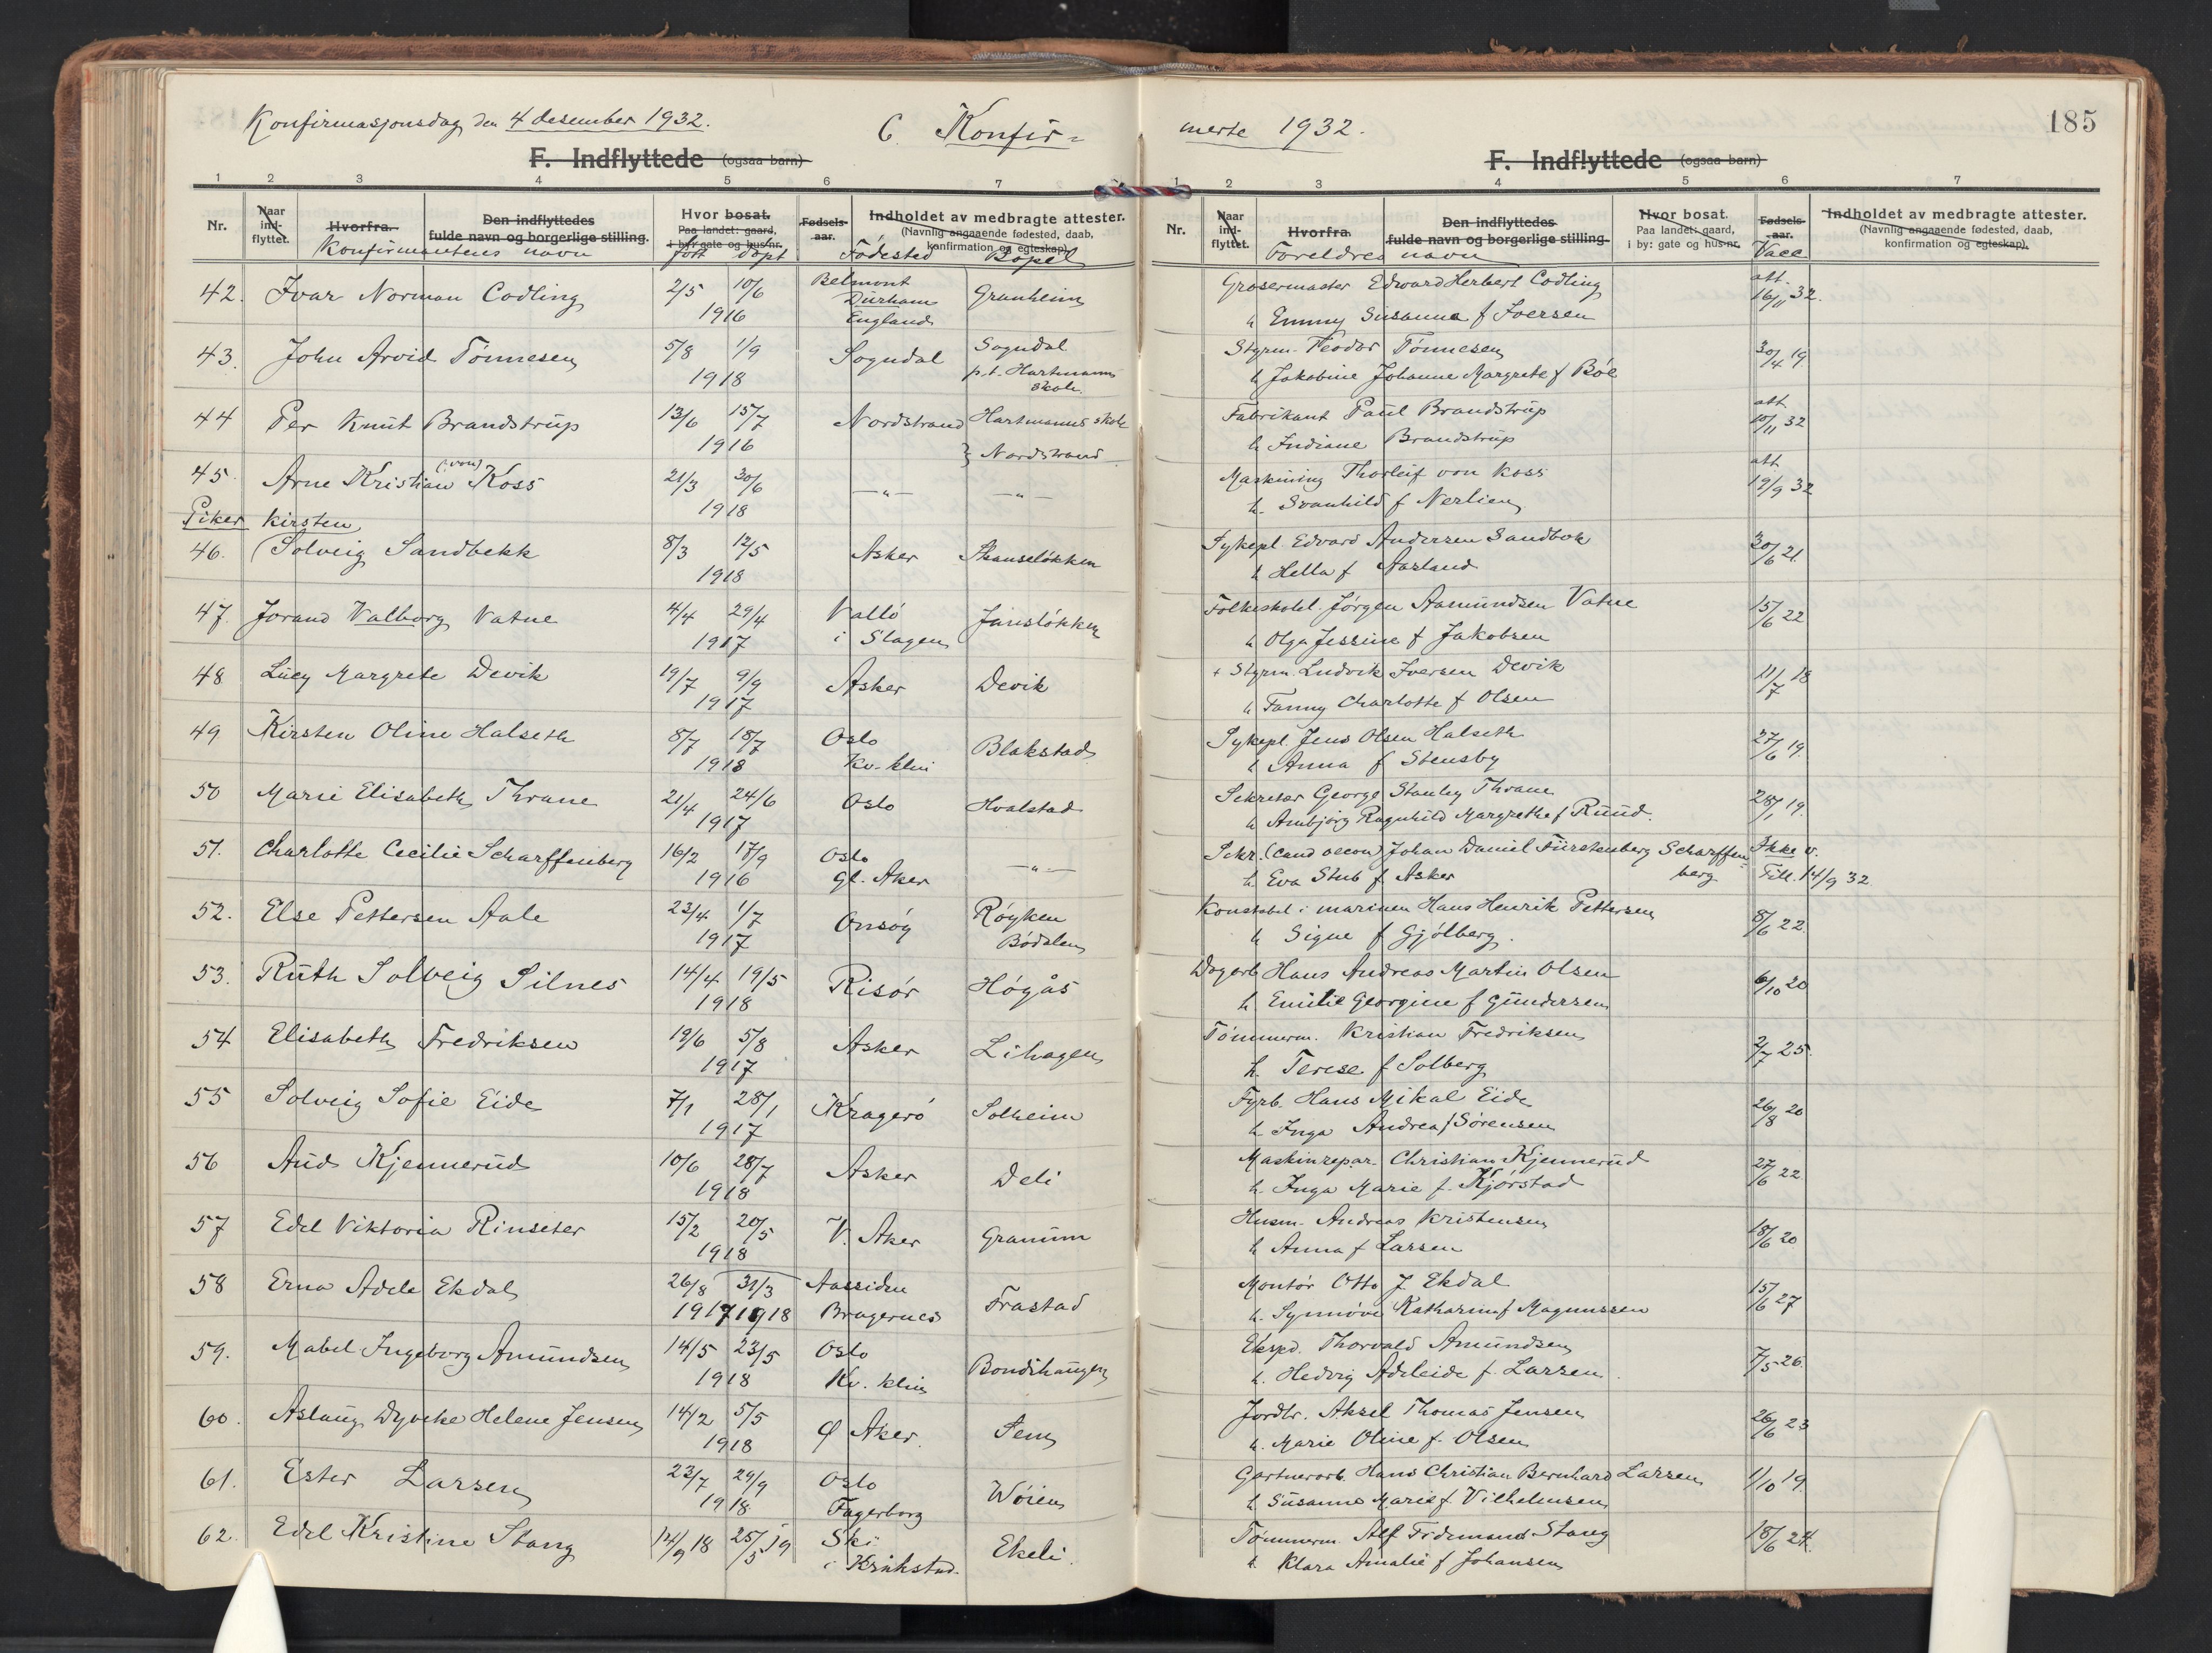 Konfirmasjonsdag den 4 desember 1932.
C. Konfir=
F. Indflyttede (ogsaa barn)
1 2 3 4 5 6 7
Nr. Naar ind-flyttet. Hvorfra. Den indflyttedes fulde navn og borgerlige stilling. Hvor bosat. Paa landet: gaard, i by: gate og hus nr. Fødsels-aar. Indholdet av medbragte attester. (Navnlig angaaende fødested, daab, konfirmation og egteskap).
Konfirmantenes navn født døpt Fødested Bopel
42. Ivar Norman Codling 2/5 10/6 1916 Belmont Durham England Granheim
43. John Arvid Tønnesen 5/8 1/9 1918 Sogndal Sogndal p.t. Hartmanns skole
44 Per Knut Brandstrup 13/6 15/7 1916 Nordstrand Hartmanns skole
} Nordstrand
45. Arne Kristian (von) Koss 21/3 30/6 1918 —"— —"—
Piker
46. Kirsten (Solveig Sandbekk 8/3 12/5 1918 Asker Skauseløkken
47. Jorand Valborg Vatne 4/4 29/4 1917 Valló i Slagen Jansløkken
48 Lucy Margrete Devik 19/7 9/9 1917 Asker Devik
49 Kirsten Oline Halseth 8/7 18/7 1918 Oslo Kv. klin Blakstad
50 Marie Elisabeth Thrane 21/4 24/6 1917 Oslo Hvalstad
51. Charlotte Cecilie Scharffenberg 16/2 17/9 1916 Oslo Gl. Aker —"—
52. Else Pettersen Aale 23/4 1/7 1917 Onsøy Røyken Bødalen
53. Ruth Solveig Silnes 14/4 19/5 1918 Risør Høgås
54 Elisabeth Fredriksen 19/6 5/8 1917 Asker Lihagen
55 Solveig Sofie Eide 7/1 28/1 1917 Kragerø Solheim
56 Aud Kjennerud 10/6 28/7 1918 Asker Deli
57 Edel Viktoria Rinseter 15/2 20/5 1918 V. Aker Granum
58 Erna Adele Ekdal 26/8 1917 31/3 1918 Aassiden Bragernes Frastad
59. Mabel Ingeborg Amundsen 14/5 23/5 1918 Oslo Kv. klin Bondihaugen
60. Aslaug Dyveke Helene Jensen 14/2 5/5 1918 Ø Aker. Sem
61. Ester Larsen 23/7 29/9 1918. Oslo Fagerborg Wøien
62. Edel Kristine Stang 14/9 18 25/5 19 Ski i Kråkstad. Ekeli.
merte 1932.
185
F. Indflyttede (ogsaa barn)
1 2 3 4 5 6 7
Nr. Naar ind-flyttet. Hvorfra. Den indflyttedes fulde navn og borgerlige stilling. Hvor bosat. Paa landet: gaard, i by: gate og hus nr. Fødsels-aar. Indholdet av medbragte attester. (Navnlig angaaende fødested, daab, konfirmation og egteskap).
Foreldres navn Vacc
Grosermaster Edward Herbert Codling att. 16/11 32.
h Emmy Susanna f Iversen
Styrm. Teodor Tønnesen 30/4 19.
h Jakobine Johanne Margrete f Bøe
Fabrikant Paul Brandstrup att 10/11 32
h Indiane Brandstrup
Maskining Thorleif von Koss att 19/9 32
h. Svanhild f Nerlien
Sykepl. Edvard Andersen Sandbek 30/6 21.
h Hella f Aarland
Folkeskolel. Jørgen Aamundsen Vatne 15/6 22
h Olga Jessine f Jakobsen
+ Styrm. Ludvik Iversen Devik 11/7 18
h Fanny Charlotte f Olsen
Sykepl. Jens Olsen Halseth 27/6 19.
h Anna f Stensby
Sekretær George Stanley Thrane 28/1 19.
h Ambjørg Ragnhild Margrethe f Ruud.
Sekr. (cand oecon) Johan Daniel Fürstenberg Scharffen= Ikke v.
h. Eva Stub f Asker berg Till. 14/9 32
Konstabel i marinen Hans Henrik Pettersen 8/6 22.
h Signe f Gjølberg.
Dagarb. Hans Andreas Martin Olsen 6/10 20
h. Emilie Georgine f Gundersen
Tømmerm. Kristian Fredriksen 2/7 25.
h. Terese f Solberg
Fyrb. Hans Mikal Eide 26/8 20
h Inga Andrea f Sørensen
Maskinrepar. Christian Kjennerud 27/6 22
h. Inga Marie f. Kjørstad
Husm. Andreas Kristensen 18/6 20
h Anna f Larsen
Montør Otto J Ekdal 15/6 27
h. Synnøve Katharina f Magnussen
Eksped. Thorvald Amundsen 7/5 26.
h. Hedvig Adeleide f. Larsen.
Jordbr. Aksel Thomas Jensen 26/6 23
h. Marie Oline f. Olsen
Gartnerarb. Hans Christian Bernhard Larsen 1/10 19.
h. Susanne Marie f. Vilhelmsen
Tømmerm. Alf Fredinand Stang 18/6 24.
h. Klara Amalie f Johansen